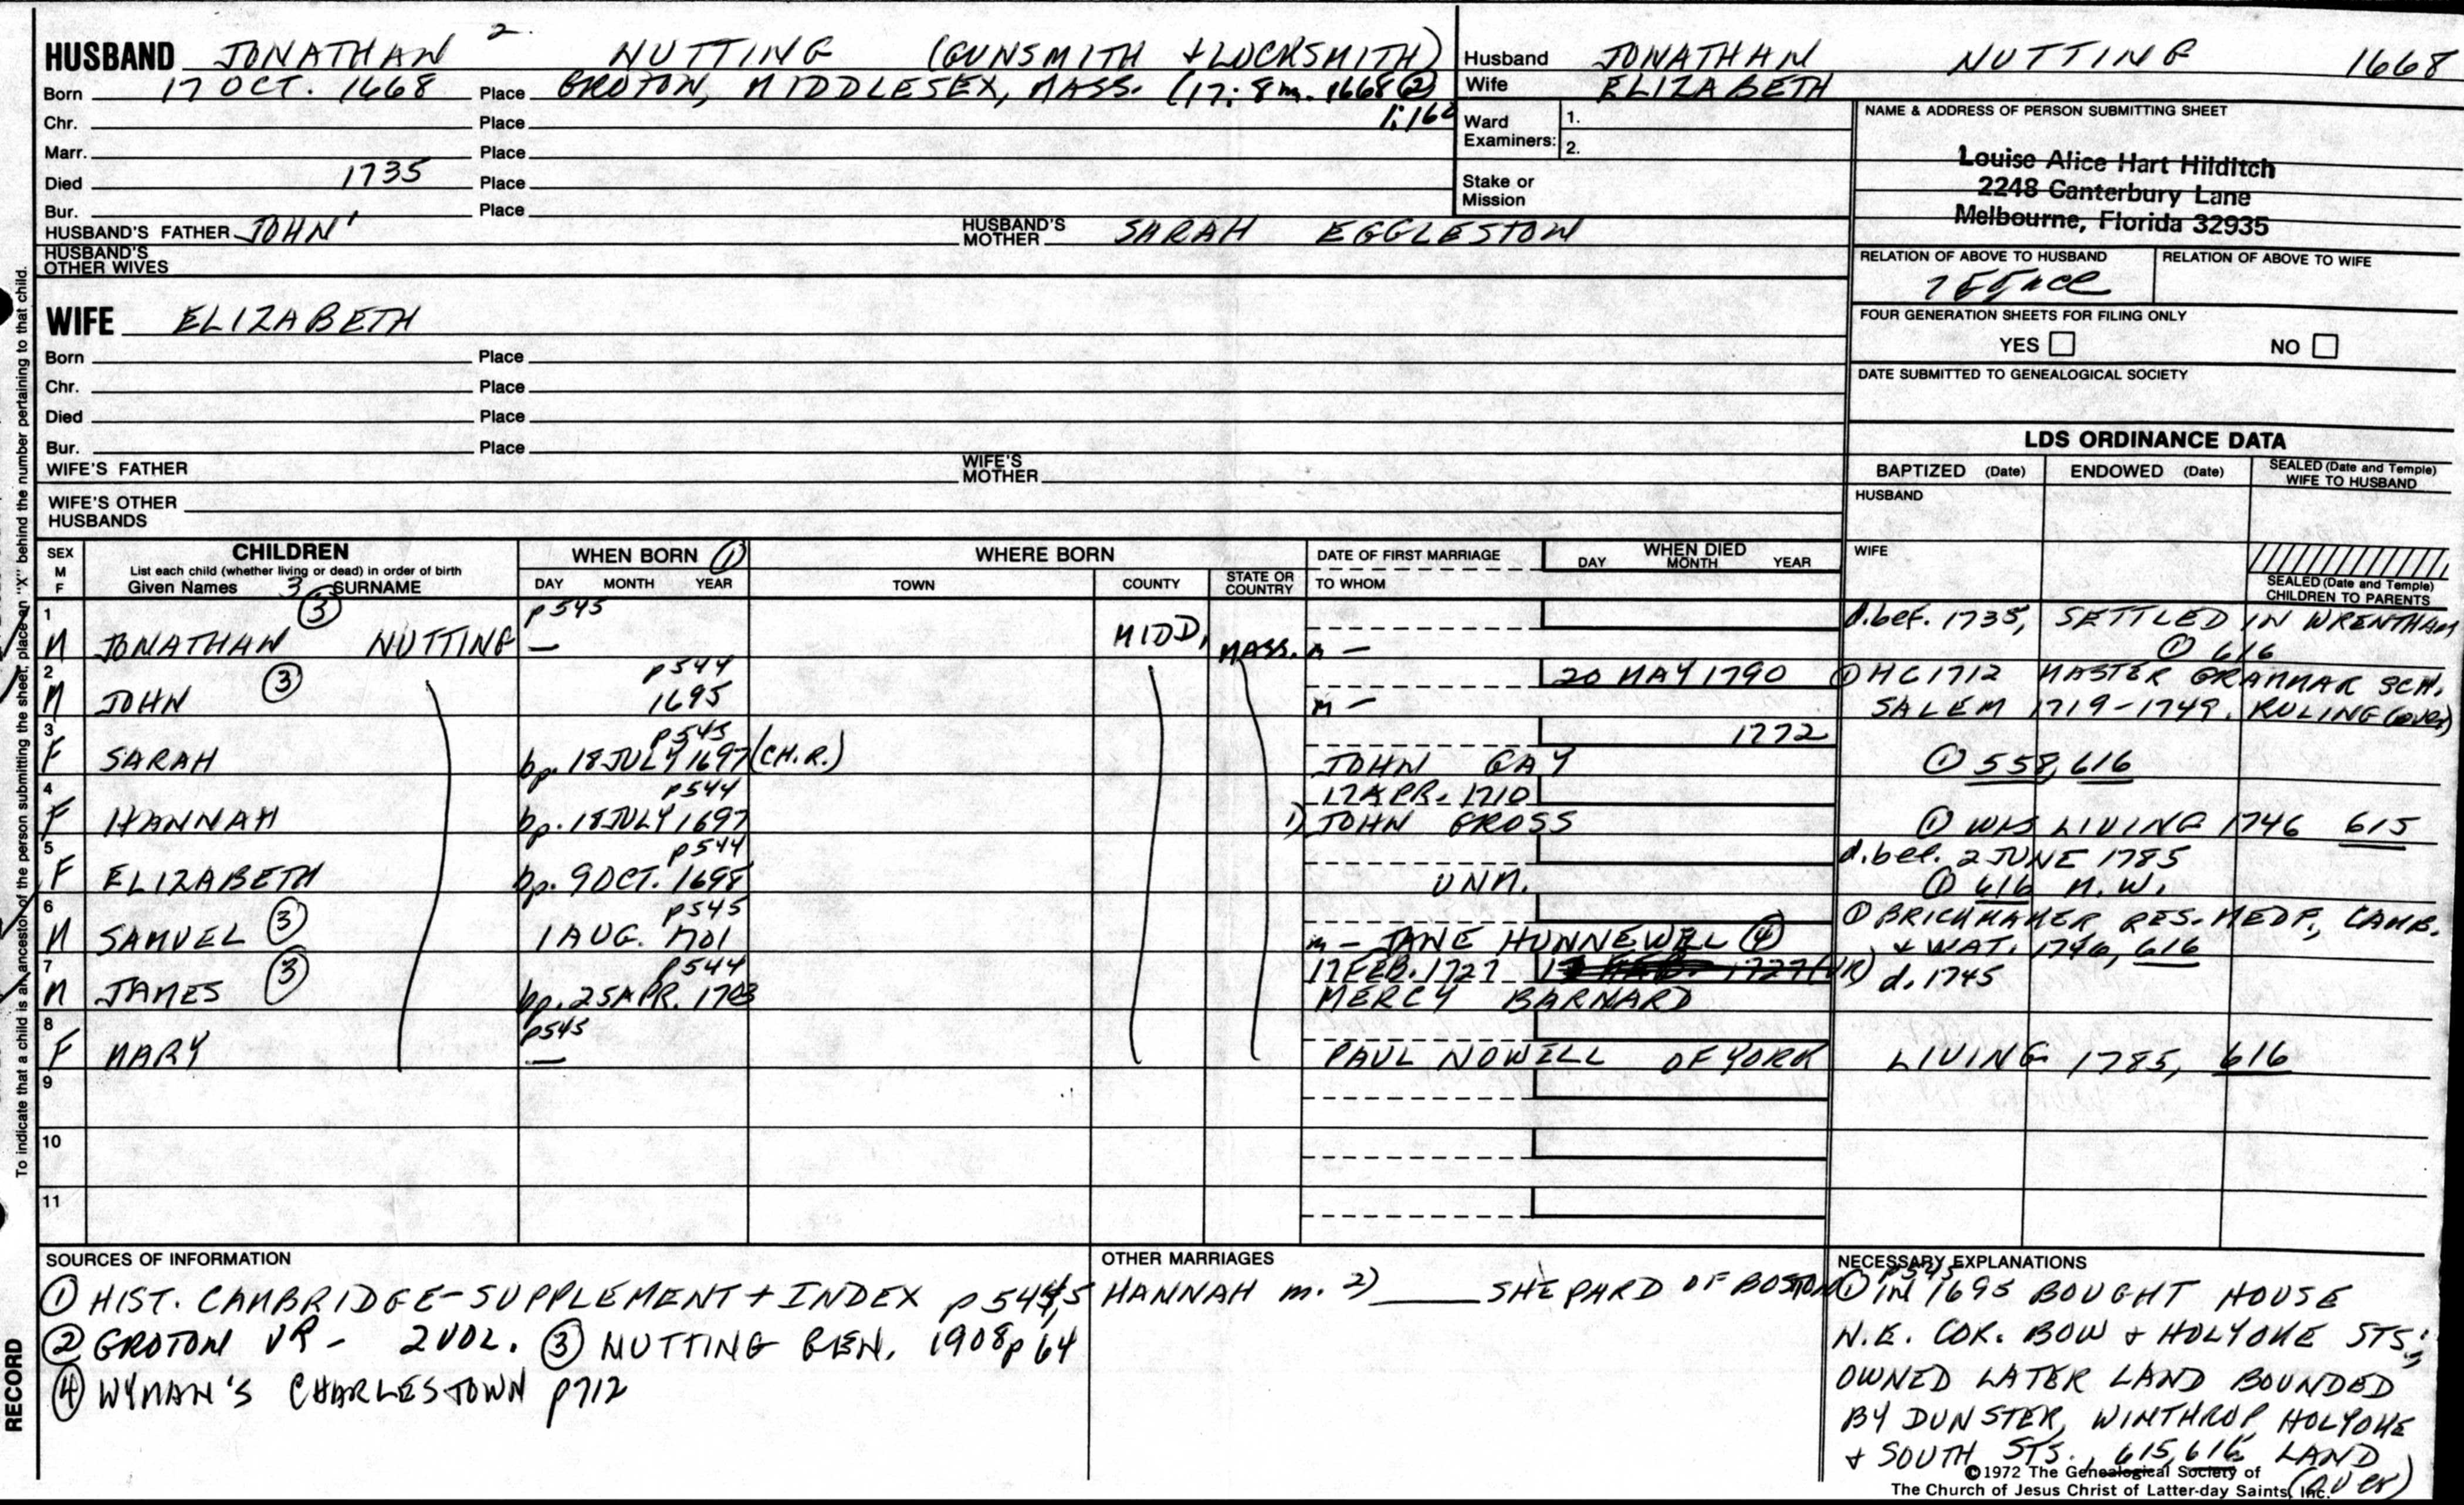 HUSBAND JONATHAN 2. NUTTING (GUNSMITH + LOCKSMITH)
Born 17 OCT. 1668 Place GROTON, MIDDLESEX, MASS. (17: 8m. 1668 ②
Chr. Place 1:160
Marr. Place
Died 1735 Place
Bur. Place
HUSBAND'S FATHER JOHN' HUSBAND'S MOTHER SARAH EGGLESTON
HUSBAND'S OTHER WIVES
WIFE ELIZABETH
Born Place
Chr. Place
Died Place
Bur. Place
WIFE'S FATHER WIFE'S MOTHER
WIFE'S OTHER HUSBANDS
Husband JONATHAN NUTTING 1668
Wife ELIZABETH
Ward Examiners: 1.
2.
Stake or Mission
NAME & ADDRESS OF PERSON SUBMITTING SHEET
Louise Alice Hart Hilditch
2248 Canterbury Lane
Melbourne, Florida 32935
RELATION OF ABOVE TO HUSBAND RELATION OF ABOVE TO WIFE
FOUR GENERATION SHEETS FOR FILING ONLY
YES NO
DATE SUBMITTED TO GENEALOGICAL SOCIETY
LDS ORDINANCE DATA
BAPTIZED (Date) ENDOWED (Date) SEALED (Date and Temple) WIFE TO HUSBAND
HUSBAND
WIFE
SEALED (Date and Temple) CHILDREN TO PARENTS
To indicate that a child is an ancestor of the person submitting the sheet, place an "X" behind the number pertaining to that child.
SEX M F
CHILDREN
List each child (whether living or dead) in order of birth
Given Names 3 SURNAME
WHEN BORN ①
DAY MONTH YEAR
WHERE BORN
TOWN COUNTY STATE OR COUNTRY
DATE OF FIRST MARRIAGE
TO WHOM
WHEN DIED
DAY MONTH YEAR
1 ③ p545 d.bef. 1735, SETTLED IN WRENTHAM
M JONATHAN NUTTING — MIDD, MASS. m — ① 616
2 p544 20 MAY 1790 ① HC 1712 MASTER GRAMMAR SCH.
M JOHN ③ 1695 m — SALEM 1719-1749. RULING (over)
3 p545 1772
F SARAH bp. 18 JULY 1697 (CH.R.) JOHN GAY ① 558, 616
4 p544 17 APR. 1710
F HANNAH bp. 18 JULY 1697 1) JOHN GROSS ① WAS LIVING 1746 615
5 p544 d.bef. 2 JUNE 1785
F ELIZABETH bp. 9 OCT. 1698 UNM. ① 616 N.W.
6 p545 ① BRICKMAKER, RES. MEDF., CAMB.
M SAMUEL ③ 1 AUG. 1701 m — JANE HUNNEWELL ④ + WAT. 1746, 616
7 p544 17 FEB. 1727 1727 (VR) d. 1745
M JAMES ③ bp. 25 APR. 1703 MERCY BARNARD
8 p545
F MARY — PAUL NOWELL OF YORK LIVING 1785, 616
9
10
11
SOURCES OF INFORMATION
① HIST. CAMBRIDGE-SUPPLEMENT + INDEX p 544,5
② GROTON VR - 2 VOL. ③ NUTTING GEN. 1908 p 64
④ WYMAN'S CHARLESTOWN p712
OTHER MARRIAGES
HANNAH m. 2) ____ SHEPARD OF BOSTON
NECESSARY EXPLANATIONS
p545
① IN 1695 BOUGHT HOUSE
N.E. COR. BOW + HOLYOKE STS;
OWNED LATER LAND BOUNDED
BY DUNSTER, WINTHROP, HOLYOKE
+ SOUTH STS., 615, 616 LAND
(over)
©1972 The Genealogical Society of
The Church of Jesus Christ of Latter-day Saints, Inc.
RECORD